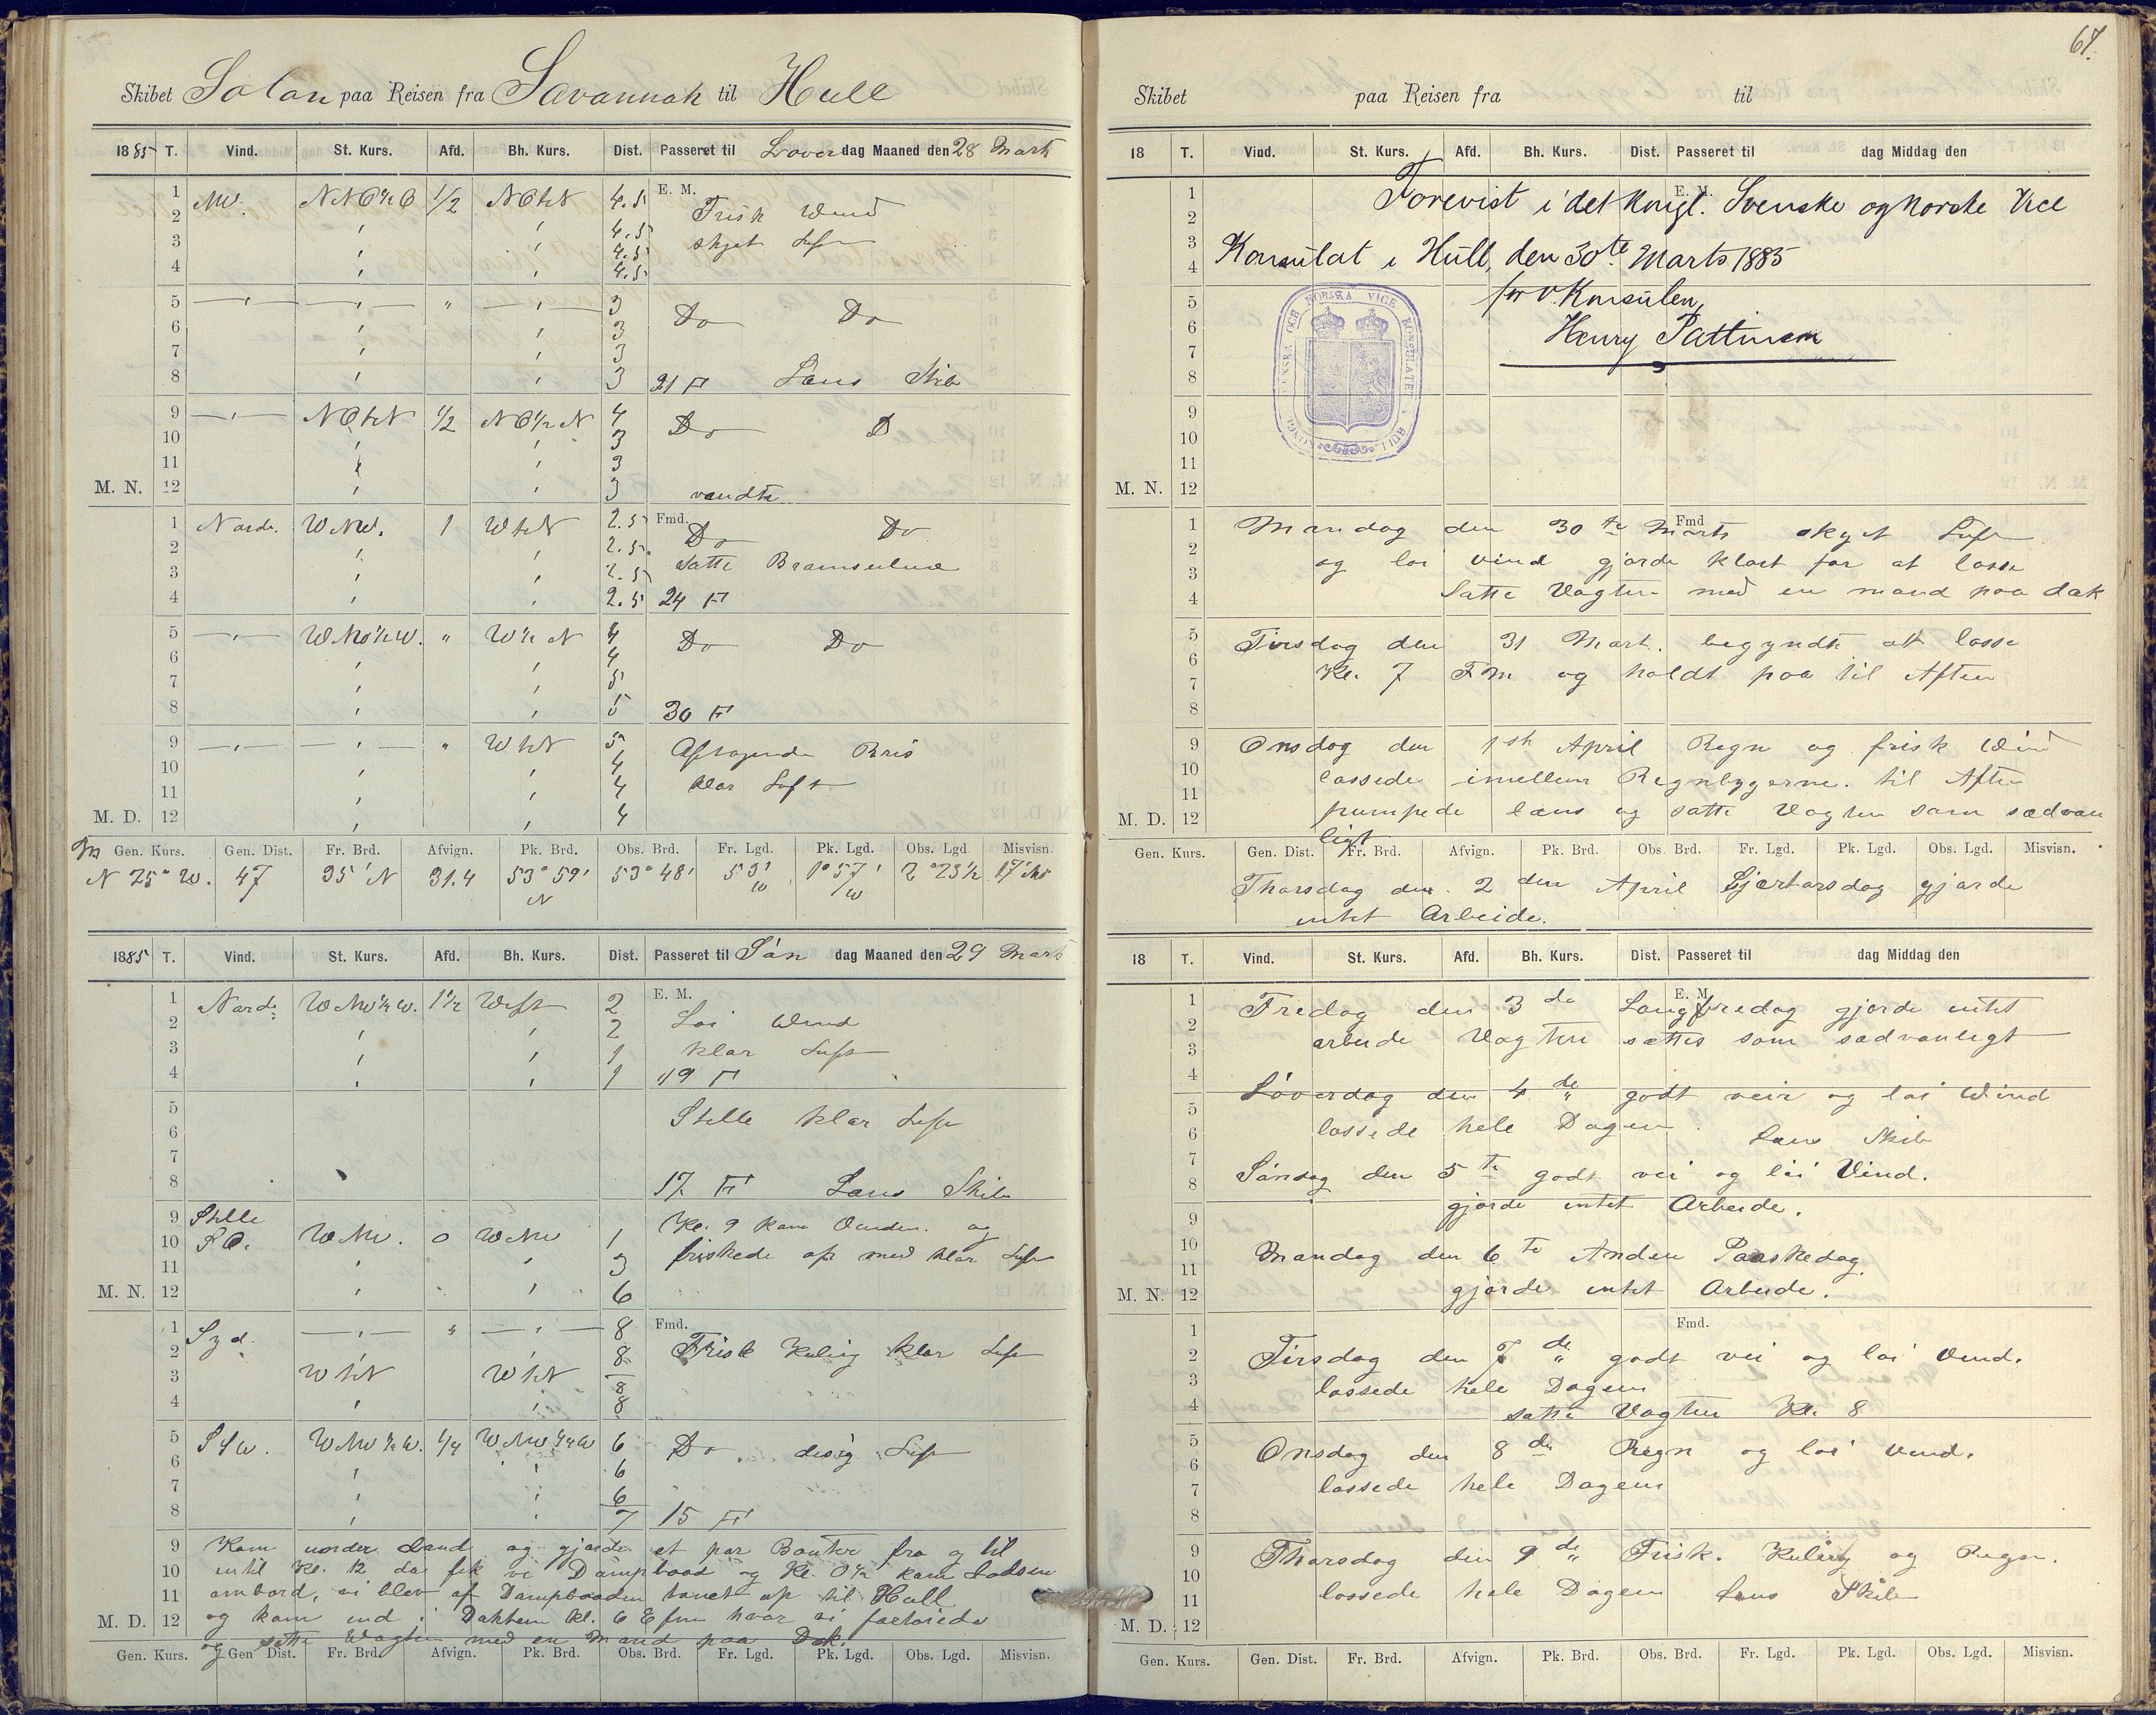 Skibet Solon paa Reisen fra Savannah til Hull
1885 T. Vind. St. Kurs. Afd. Bh. Kurs. Dist. Passeret til Löver dag Maaned den 28 Marts
1 NW. NNO½O 1/2 NOtN 4.5 E. M.
2 Frisk Wind
3 skyet Luft
4
5
6 Do Do
7
8 21 F Læns Skib
9 NOtN 1/2 NO½N 4
10 Do D
11
M. N. 12 vendte
1 Norde. WNW. 1 WtN 2.5 Fmd.
2 Do Do
3 satte Bramseilene
4 24 F
5 WNW½W. " W½N 4
6 Do Do
7
8 30 F
9 WtN 5 Aftagende Bris
10
11 klar Luft
M. D. 12
Gen. Kurs. Gen. Dist. Fr. Brd. Afvign. Pk. Brd. Obs. Brd. Fr. Lgd. Pk. Lgd. Obs. Lgd. Misvisn.
N 75° W. 47 35' N 31.4 53° 59' N 53° 48' 53' W 1° 57' W 2° 23½
1885 T. Vind. St. Kurs. Afd. Bh. Kurs. Dist. Passeret til Søn dag Maaned den 29 Marts
1 Norde: WNW½W. 1½ West 2 E. M.
2 Loi Wind
3 klar Luft
4 19 F
5 Stille klar Luft
6
7
8 17 F Læns Skib
9 Stille Kl. 9 kom Vinden og
10 SO. WNW. 0 WNW 1 friskede op med klar Luft
11 3
M. N. 12 6
1 Syd. 8 Fmd.
2 8 Frisk Kuling klar Luft
3 WtN WtN 8
4 8
5 StW. WNW½W. 1/4 WNW¼W 6 Do disig Luft
6 6
7 6
8 7 15 F
9 Kom under Land og gjorde et par Bouter fra og til
10 intil Kl. 12 da fik vi Dampbaad og Kl. 0½ kom Lodsen
11 ombord, vi blev af Dampbaaden touet op til Hull
M. D. 12 og kom ind i Dokken Kl. 6 Efm hvor vi fortøiede
og satte Wagten med en Mand paa Dæk.
Gen. Kurs. Gen Dist. Fr. Brd. Afvign. Pk. Brd. Obs. Brd. Fr. Lgd. Pk. Lgd. Obs. Lgd. Misvisn.
67.
Skibet paa Reisen fra til
18 T. Vind. St. Kurs. Afd. Bh. Kurs. Dist. Passeret til dag Middag den
Forevist i det Kongl. Svenske og Norske Vice
Konsulat i Hull, den 30te Marts 1885
for v. Konsulen,
Henry Pattinson
Mandag den 30te Marts skyet Luft
og loi vind gjorde klart for at losse
Satte Vagten med en mand paa dæk
Tirsdag den 31 Mart. begyndte at losse
Kl. 7 Fm og holdt paa til Aften
Onsdag den 1st April Regn og frisk Wind
lossede imellem Regnbygerne. til Aften
pumpede læns og satte Vagten som sædvan
ligt
Gen. Kurs. Gen. Dist. Fr. Brd. Afvign. Pk. Brd. Obs. Brd. Fr. Lgd. Pk. Lgd. Obs. Lgd. Misvisn.
Thorsdag den 2den April Skjærtorsdag gjorde
intet Arbeide.
18 T. Vind. St. Kurs. Afd. Bh. Kurs. Dist. Passeret til dag Middag den
Fredag den 3de Langfredag gjorde intet
arbeide Vagten sattes som sædvanligt
Löverdag den 4de godt veir og loi Wind
lossede hele Dagen. Læns Skib
Söndag den 5te godt vei og löi Vind.
gjorde intet Arbeide.
Mandag den 6te Anden Paaskedag
gjorde intet Arbeide.
Tirsdag den 7de godt vei og loi Vind.
lossede hele Dagen
satte Vagten Kl. 8
Onsdag den 8de Regn og loi Vind.
lossede hele Dagen
Thorsdag den 9de Frisk. Kuling og Regn.
lossede hele Dagen Læns Skib
Gen. Kurs. Gen. Dist. Fr. Brd. Afvign. Pk. Brd. Obs. Brd. Fr. Lgd. Pk. Lgd. Obs. Lgd. Misvisn.